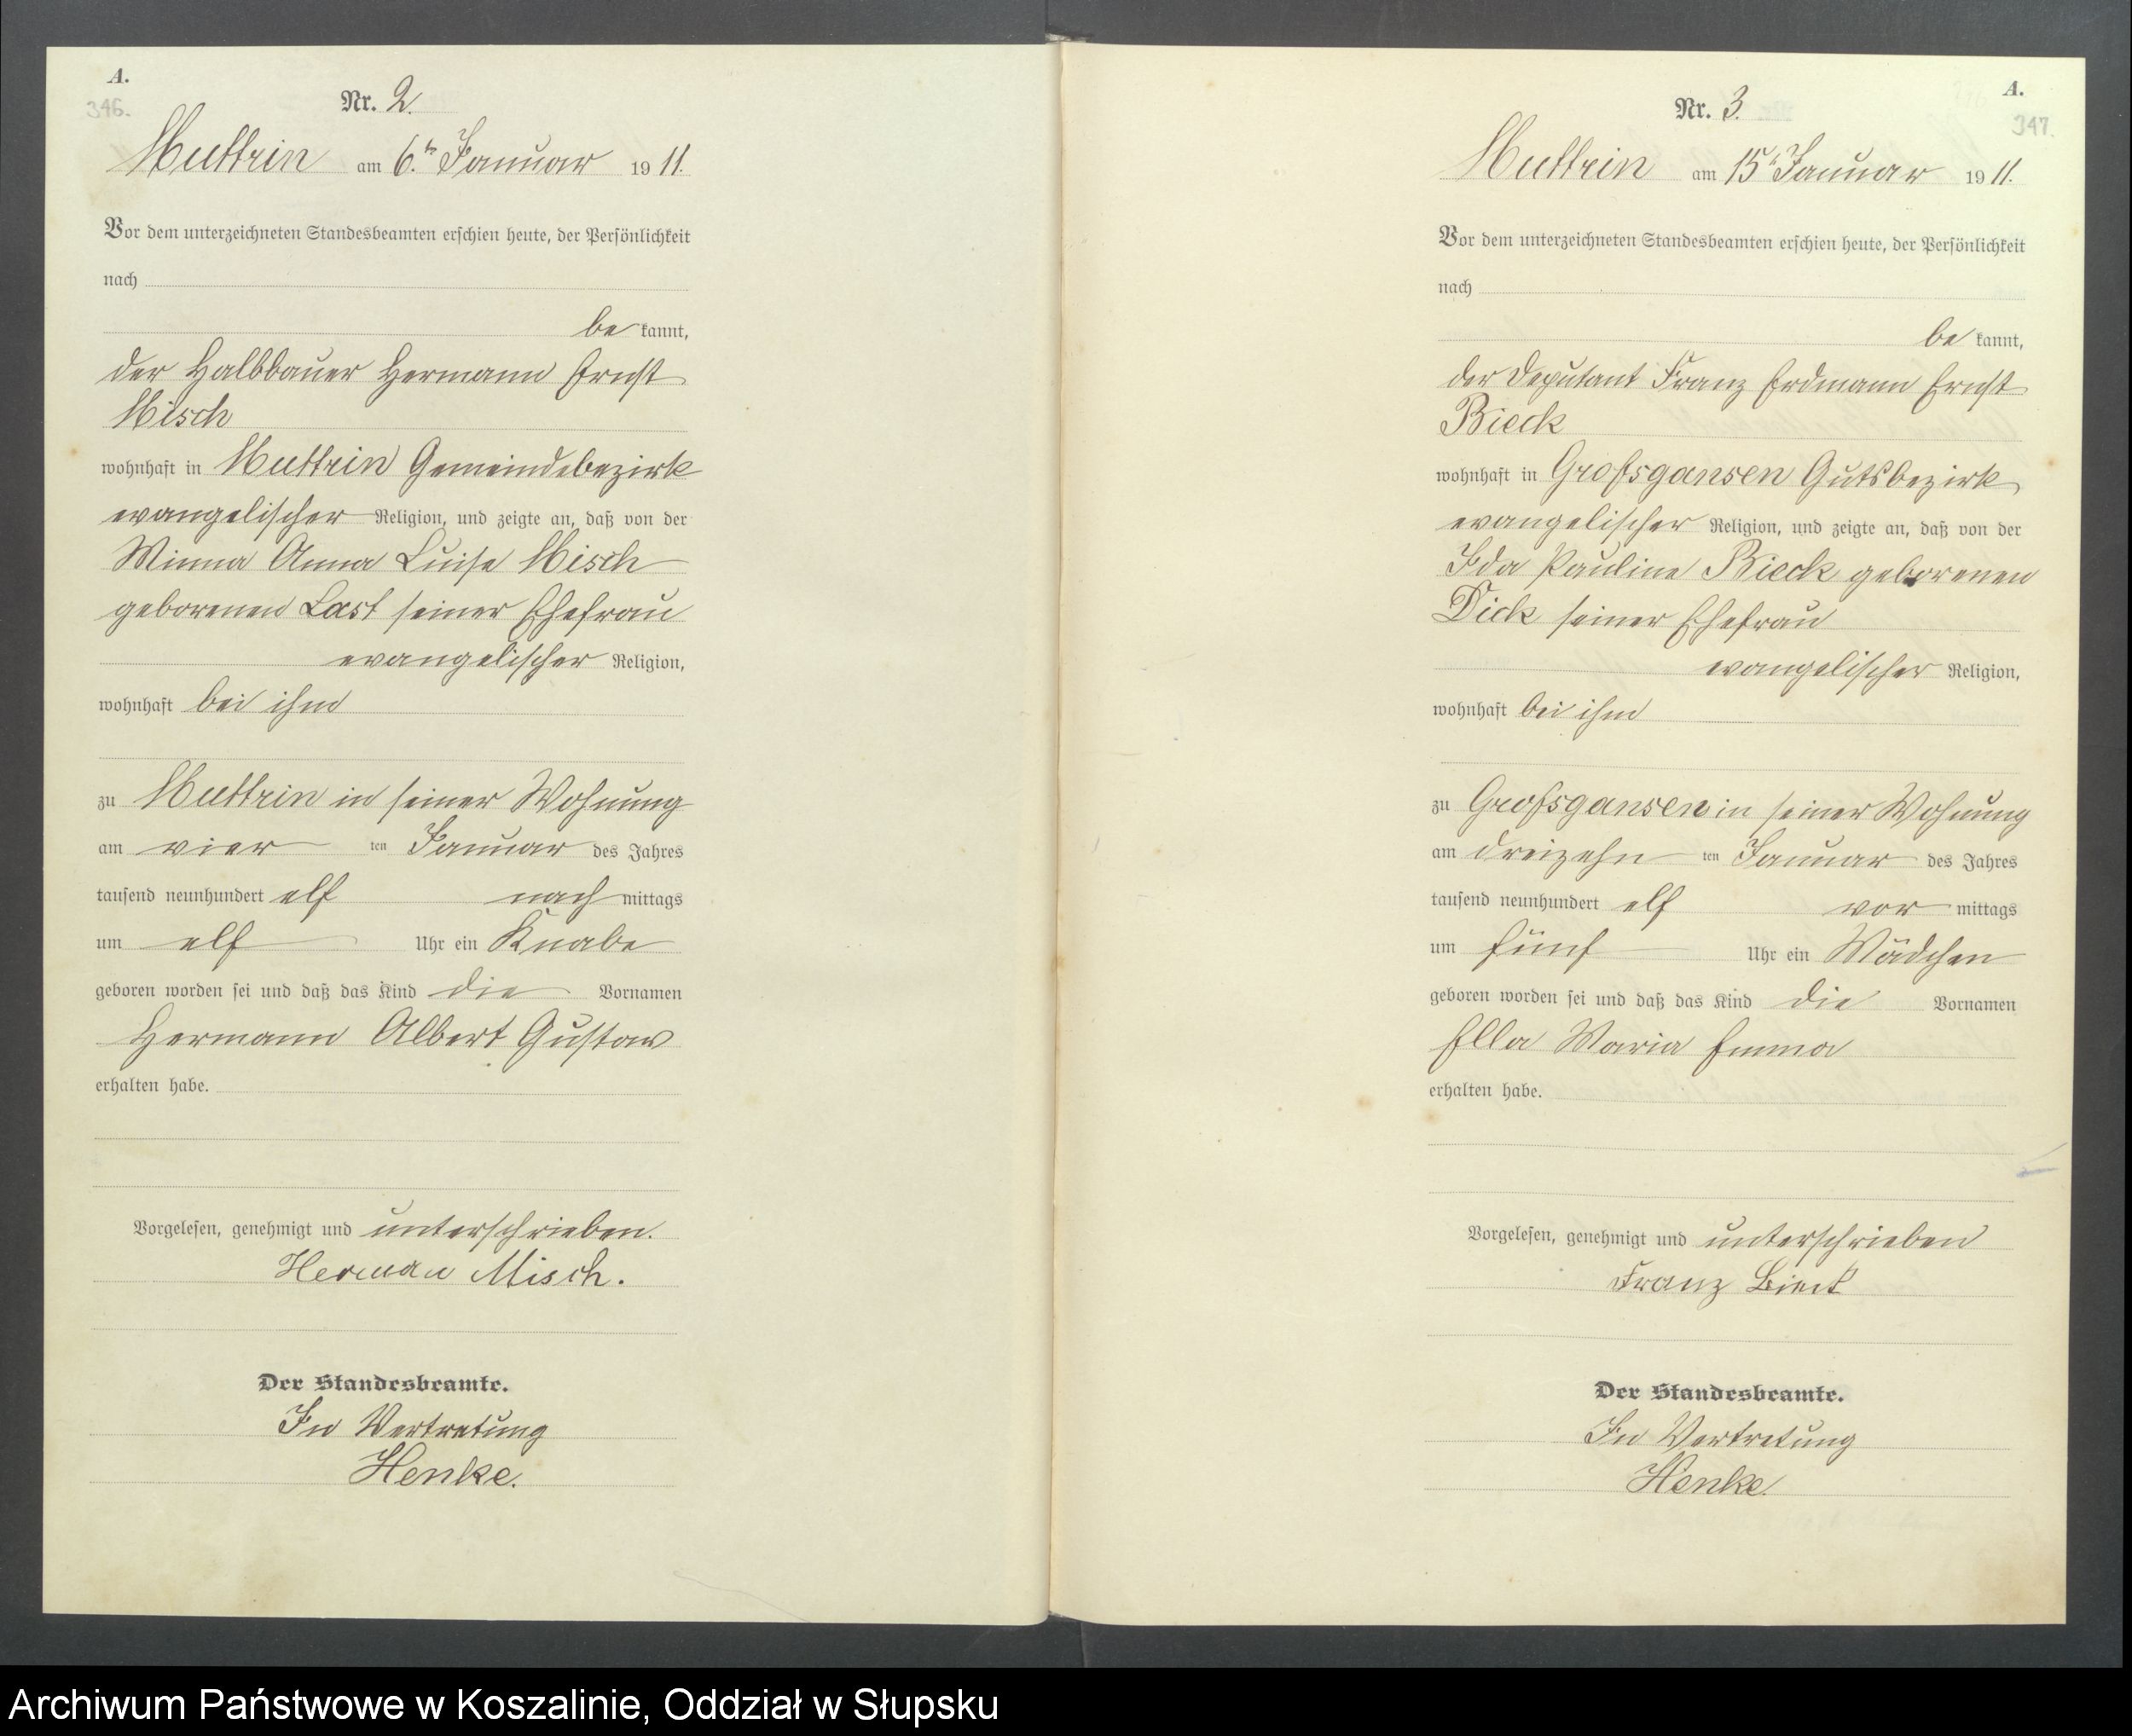 A.
346.
Nr. 2.
Muttrin am 6.ten Januar 1911.
Vor dem unterzeichneten Standesbeamten erschien heute, der Persönlichkeit
nach
be kannt,
der Halbbauer Hermann Ernst
Misch
wohnhaft in Muttrin Gemeindebezirk
evangelischer Religion, und zeigte an, daß von der
Minna Anna Luise Misch
geborenen Last seiner Ehefrau
evangelischer Religion,
wohnhaft bei ihm
zu Muttrin in seiner Wohnung
am vier ten Januar des Jahres
tausend neunhundert elf nach mittags
um elf Uhr ein Knabe
geboren worden sei und daß das Kind die Vornamen
Hermann Albert Gustav
erhalten habe.
Vorgelesen, genehmigt und unterschrieben.
Herman Misch.
Der Standesbeamte.
In Vertretung
Henke.
A.
347.
Nr. 3.
Muttrin am 15t Januar 1911.
Vor dem unterzeichneten Standesbeamten erschien heute, der Persönlichkeit
nach
be kannt,
der Deputant Franz Erdmann Ernst
Bieck
wohnhaft in Großgansen Gutsbezirk
evangelischer Religion, und zeigte an, daß von der
Ida Pauline Bieck geborenen
Dick seiner Ehefrau
evangelischer Religion,
wohnhaft bei ihm
zu Großgansen in seiner Wohnung
am dreizehn ten Januar des Jahres
tausend neunhundert elf vor mittags
um fünf Uhr ein Mädchen
geboren worden sei und daß das Kind die Vornamen
Ella Maria Emma
erhalten habe.
Vorgelesen, genehmigt und unterschrieben
Franz Bieck
Der Standesbeamte.
In Vertretung
Henke.
Archiwum Państwowe w Koszalinie, Oddział w Słupsku